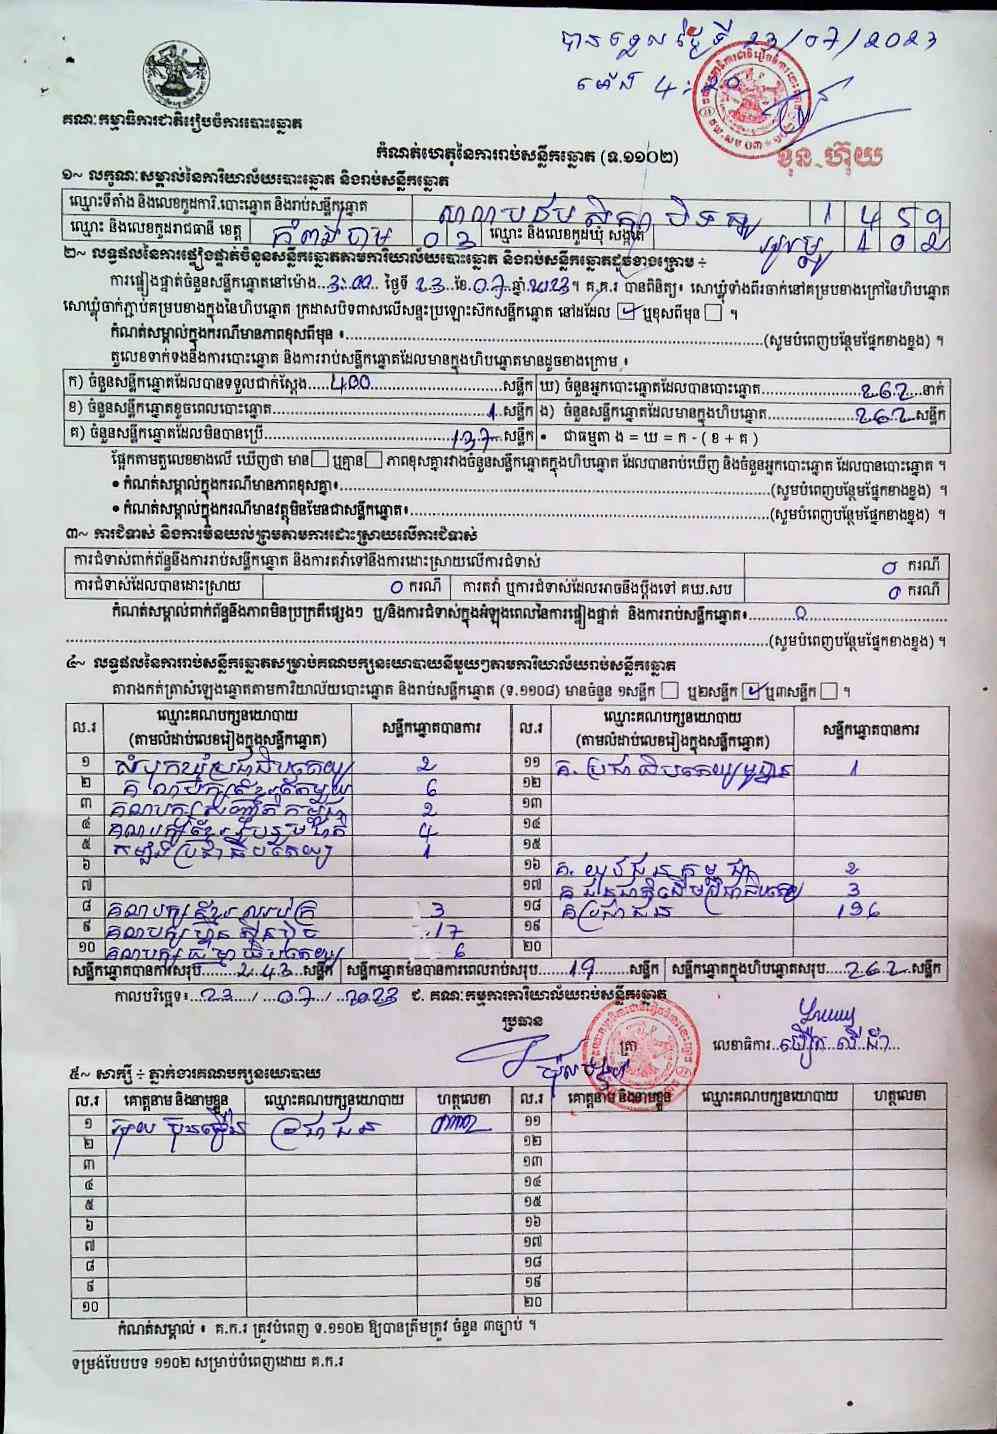 បានទទួល ថ្ងៃទី 23/07/2023
ម៉ោង 4:
ខុន ហ៊ុយ
គណៈកម្មាធិការជាតិរៀបចំការបោះឆ្នោត
កំណត់ហេតុនៃការរាប់សន្លឹកឆ្នោត (ទ.១១០២)
១~ លក្ខណៈសម្គាល់នៃការិយាល័យបោះឆ្នោត និងរាប់សន្លឹកឆ្នោត
ឈ្មោះទីតាំង និងលេខកូដការិ.បោះឆ្នោត និងរាប់សន្លឹកឆ្នោត 1 4 5 9
ឈ្មោះ និងលេខកូដរាជធានី ខេត្ត កំពង់ចាម 0 3 ឈ្មោះ និងលេខកូដឃុំ សង្កាត់ 1 0 2
២~ លទ្ធផលនៃការផ្ទៀងផ្ទាត់ចំនួនសន្លឹកឆ្នោតតាមការិយាល័យបោះឆ្នោត និងរាប់សន្លឹកឆ្នោតដូចខាងក្រោម ÷
ការផ្ទៀងផ្ទាត់ចំនួនសន្លឹកឆ្នោតនៅម៉ោង..3:00.. ថ្ងៃទី 23 ខែ 07 ឆ្នាំ 2023។ គ.ក.រ បានពិនិត្យ៖ សោឃ្លុំទាំងពីរចាក់នៅគម្របខាងក្រៅនៃហិបឆ្នោត
សោឃ្លុំចាក់ភ្ជាប់គម្របខាងក្នុងនៃហិបឆ្នោត ក្រដាសបិទពាសលើសន្ទះប្រឡោះស៊កសន្លឹកឆ្នោត នៅដដែល ☑ ឬខុសពីមុន ☐ ។
កំណត់សម្គាល់ក្នុងករណីមានភាពខុសពីមុន ៖..........(សូមបំពេញបន្ថែមផ្នែកខាងខ្នង) ។
តួលេខទាក់ទងនឹងការបោះឆ្នោត និងការរាប់សន្លឹកឆ្នោតដែលមានក្នុងហិបឆ្នោតមានដូចខាងក្រោម ៖
ក) ចំនួនសន្លឹកឆ្នោតដែលបានទទួលជាក់ស្តែង....400....សន្លឹក ឃ) ចំនួនអ្នកបោះឆ្នោតដែលបានបោះឆ្នោត....262..នាក់
ខ) ចំនួនសន្លឹកឆ្នោតខូចពេលបោះឆ្នោត....1.សន្លឹក ង) ចំនួនសន្លឹកឆ្នោតដែលមានក្នុងហិបឆ្នោត....262.សន្លឹក
គ) ចំនួនសន្លឹកឆ្នោតដែលមិនបានប្រើ....137..សន្លឹក • ជាធម្មតា ង = ឃ = ក - ( ខ + គ )
ផ្អែកតាមតួលេខខាងលើ ឃើញថា មាន☐ ឬគ្មាន☐ ភាពខុសគ្នារវាងចំនួនសន្លឹកឆ្នោតក្នុងហិបឆ្នោត ដែលបានរាប់ឃើញ និងចំនួនអ្នកបោះឆ្នោត ដែលបានបោះឆ្នោត ។
• កំណត់សម្គាល់ក្នុងករណីមានភាពខុសគ្នា៖..........(សូមបំពេញបន្ថែមផ្នែកខាងខ្នង) ។
• កំណត់សម្គាល់ក្នុងករណីមានវត្ថុមិនមែនជាសន្លឹកឆ្នោត៖..........(សូមបំពេញបន្ថែមផ្នែកខាងខ្នង) ។
៣~ ការជំទាស់ និងការមិនយល់ព្រមតាមការដោះស្រាយលើការជំទាស់
ការជំទាស់ពាក់ព័ន្ធនឹងការរាប់សន្លឹកឆ្នោត និងការតវ៉ាទៅនឹងការដោះស្រាយលើការជំទាស់ 0 ករណី
ការជំទាស់ដែលបានដោះស្រាយ 0 ករណី ការតវ៉ា ឬការជំទាស់ដែលអាចនឹងប្តឹងទៅ គឃ.សប 0 ករណី
កំណត់សម្គាល់ពាក់ព័ន្ធនឹងភាពមិនប្រក្រតីផ្សេងៗ ឬ/និងការជំទាស់ក្នុងអំឡុងពេលនៃការផ្ទៀងផ្ទាត់ និងការរាប់សន្លឹកឆ្នោត៖....0....
..........(សូមបំពេញបន្ថែមផ្នែកខាងខ្នង) ។
៤~ លទ្ធផលនៃការរាប់សន្លឹកឆ្នោតសម្រាប់គណបក្សនយោបាយនីមួយៗតាមការិយាល័យរាប់សន្លឹកឆ្នោត
តារាងកត់ត្រាសំឡេងឆ្នោតតាមការិយាល័យបោះឆ្នោត និងរាប់សន្លឹកឆ្នោត (ទ.១១០៨) មានចំនួន ១សន្លឹក ☐ ឬ២សន្លឹក ☑ ឬ៣សន្លឹក ☐ ។
ល.រ ឈ្មោះគណបក្សនយោបាយ (តាមលំដាប់លេខរៀងក្នុងសន្លឹកឆ្នោត) សន្លឹកឆ្នោតបានការ ល.រ ឈ្មោះគណបក្សនយោបាយ (តាមលំដាប់លេខរៀងក្នុងសន្លឹកឆ្នោត) សន្លឹកឆ្នោតបានការ
១ សំបុកឃ្មុំប្រជាធិបតេយ្យ 2 ១១ គ. ប្រជាធិបតេយ្យមូលដ្ឋាន 1
២ គណបក្សខ្មែររួបរួម 6 ១២
៣ គណបក្សសញ្ជាតិកម្ពុជា 2 ១៣
៤ គណបក្សខ្មែររួបរួមជាតិ 4 ១៤
៥ កម្លាំងប្រជាធិបតេយ្យ 1 ១៥
៦ ១៦ គ. យុវជនកម្ពុជា 2
៧ ១៧ គ ជនជាតិដើមប្រជាធិបតេយ្យ 3
៨ គណបក្សខ្មែរឈប់ក្រ 3 ១៨ គ ប្រជាជន 196
៩ គណបក្សហ៊្វុនស៊ិនប៉ិច 17 ១៩
១០ គណបក្សធម្មាធិបតេយ្យ 6 ២០
សន្លឹកឆ្នោតបានការសរុប....243..សន្លឹក សន្លឹកឆ្នោតមិនបានការពេលរាប់សរុប....19....សន្លឹក សន្លឹកឆ្នោតក្នុងហិបឆ្នោតសរុប....262..សន្លឹក
កាលបរិច្ឆេទ៖..23../..07../..2023 ជ. គណៈកម្មការការិយាល័យរាប់សន្លឹកឆ្នោត
ប្រធាន ត្រា លេខាធិការ
៥~ សាក្សី ÷ ភ្នាក់ងារគណបក្សនយោបាយ
ល.រ គោត្តនាម និងនាមខ្លួន ឈ្មោះគណបក្សនយោបាយ ហត្ថលេខា ល.រ គោត្តនាម និងនាមខ្លួន ឈ្មោះគណបក្សនយោបាយ ហត្ថលេខា
១ ប្រជាជន ១១
២ ១២
៣ ១៣
៤ ១៤
៥ ១៥
៦ ១៦
៧ ១៧
៨ ១៨
៩ ១៩
១០ ២០
កំណត់សម្គាល់ ៖ គ.ក.រ ត្រូវបំពេញ ទ.១១០២ ឱ្យបានត្រឹមត្រូវ ចំនួន ៣ច្បាប់ ។
ទម្រង់បែបបទ ១១០២ សម្រាប់បំពេញដោយ គ.ក.រ